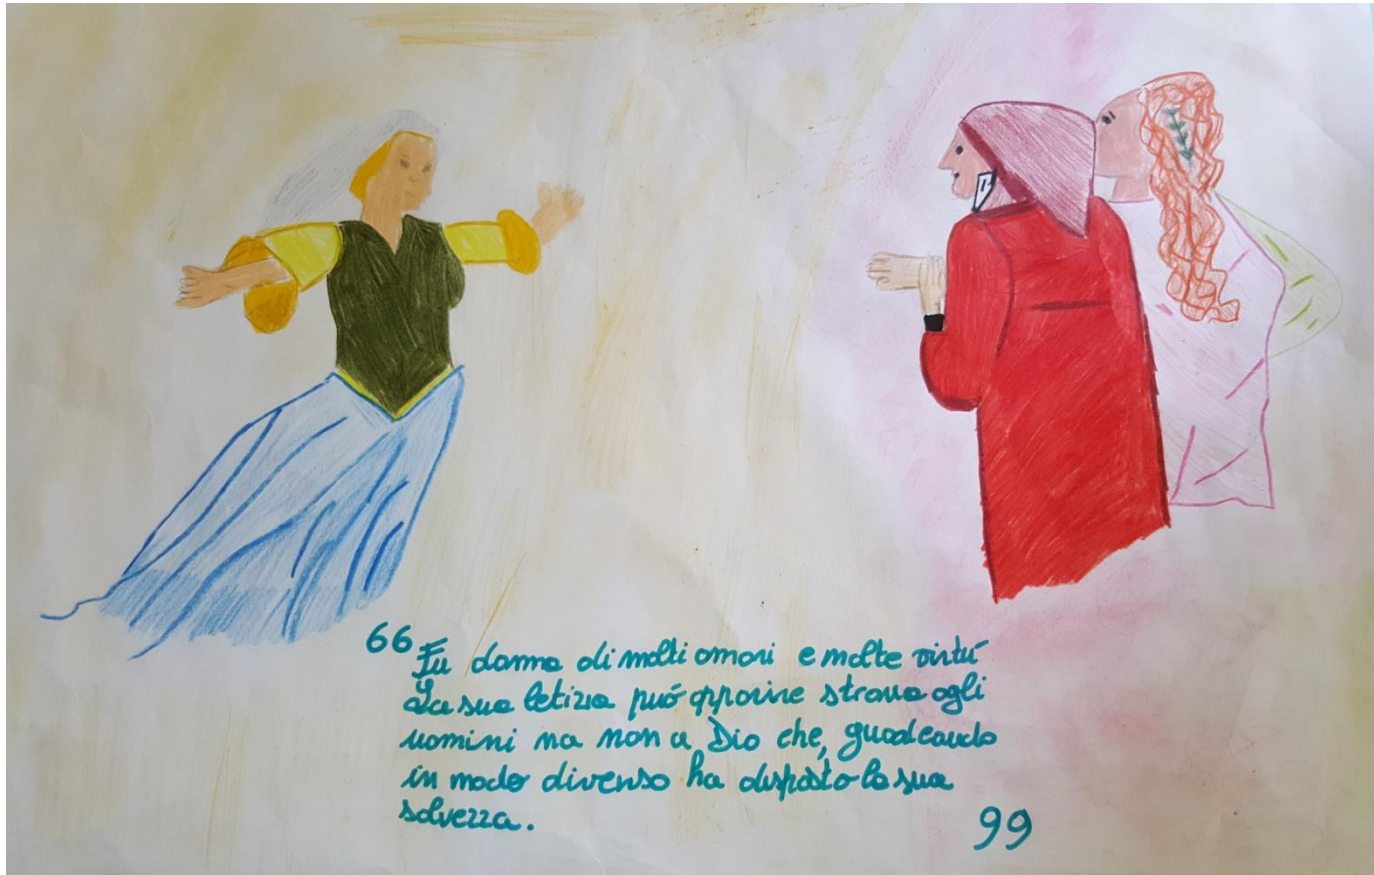 “ Fu donna di molti amori e molte virtú
La sua letizia puó apparire strana agli
uomini ma non a Dio che, giudicando
in modo diverso ha disposto la sua
salvezza. ”